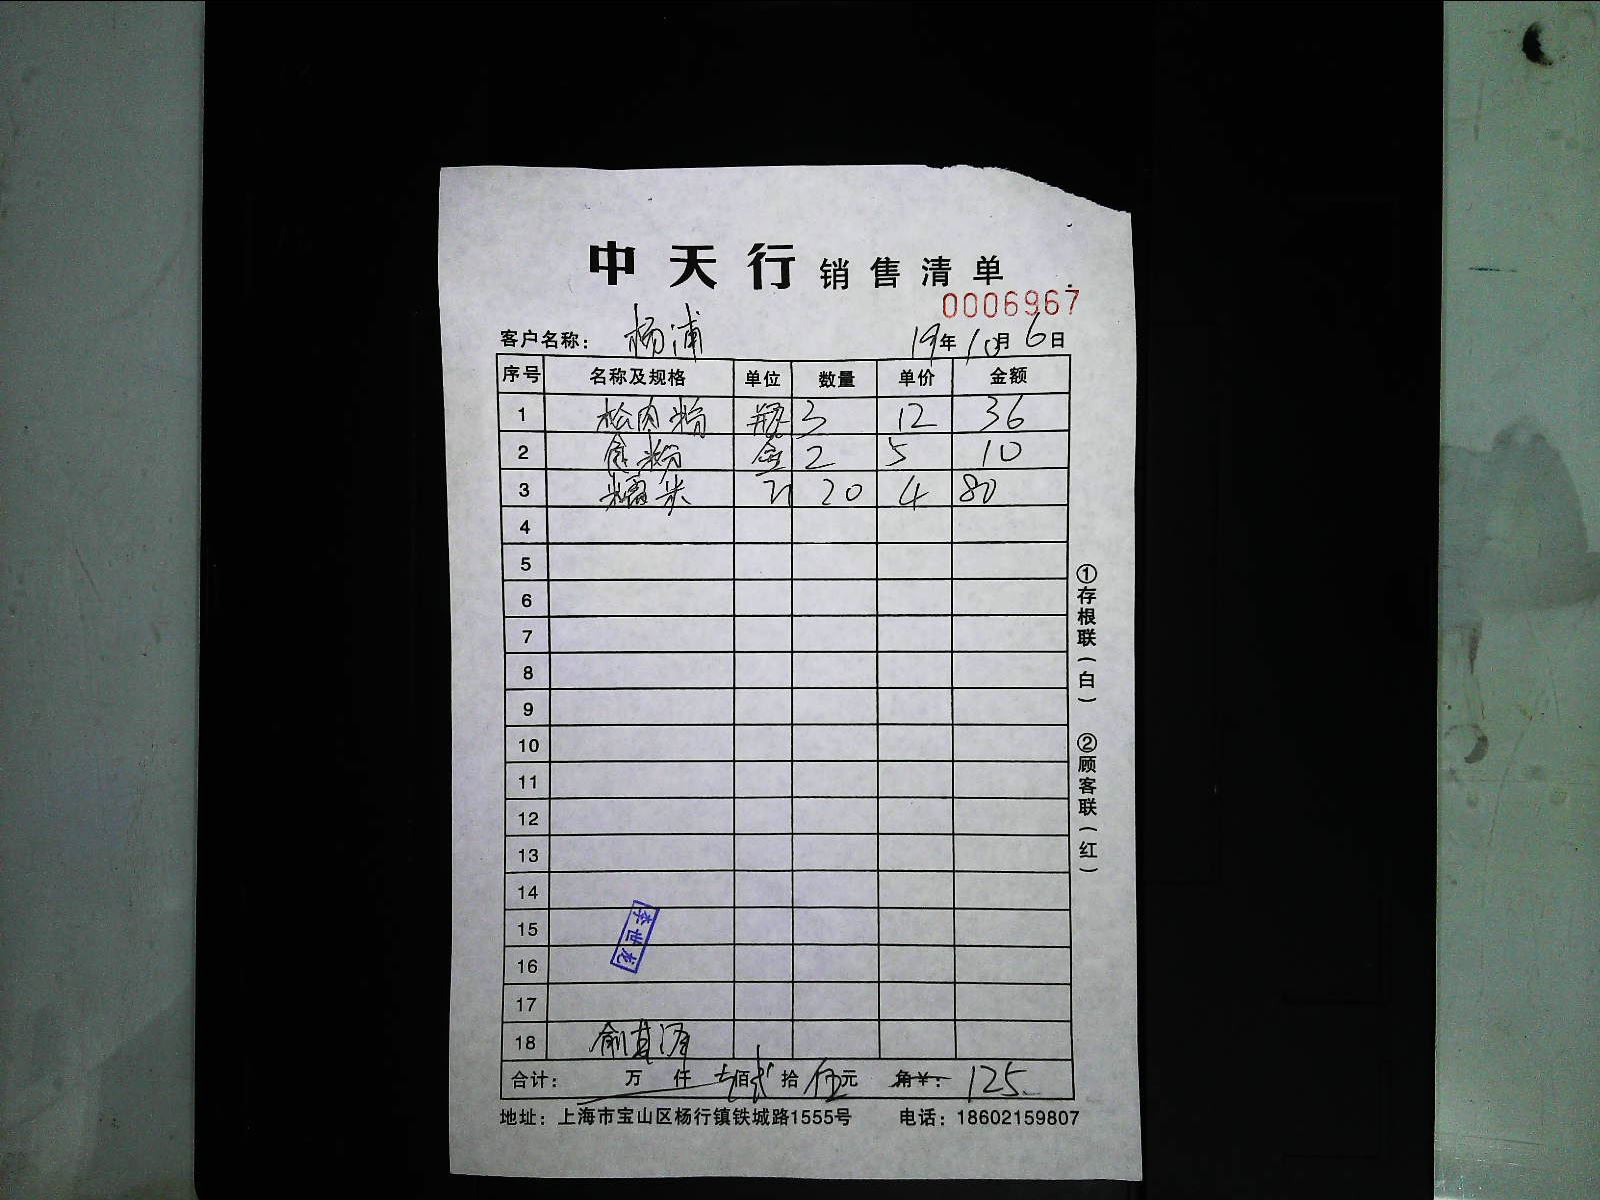 中天行 销售清单
0006967
客户名称： 杨浦 19年10月6日
序号 名称及规格 单位 数量 单价 金额
1 松肉粉 瓶 3 12 36
2 食粉 盒 2 5 10
3 糯米 20 4 80
4
5
6
7
8
9
10
11
12
13
14
15
16
17
18 俞其
李世龙
合计： 万 仟 壹佰贰拾伍元 角¥： 125
地址：上海市宝山区杨行镇铁城路1555号 电话：18602159807
①存根联（白）
②顾客联（红）